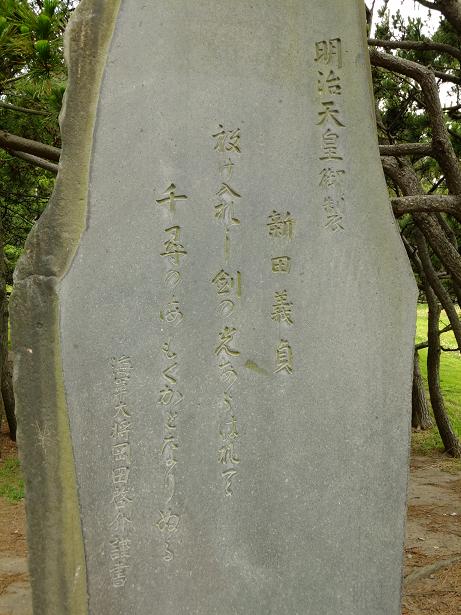 明治天皇御製
新田義貞
投け入れし剣の光あらはれて
千尋の海もくがとなりぬる
海軍大将岡田啓介謹書